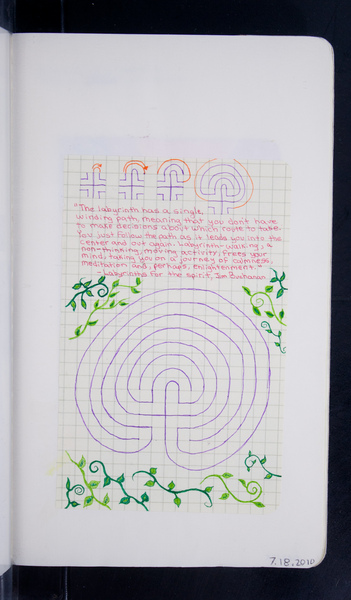 "The labyrinth has a single,
winding path, meaning that you don't have
to make decisions about which route to take.
You just follow the path as it leads you into the
center and out again. Labyrinth-walking, a
non-thinking, moving activity, frees your
mind, taking you on a journey of calmness,
meditation and, perhaps, enlightenment."
-Labyrinths for the Spirit, Jim Buchanan
7.18.2010